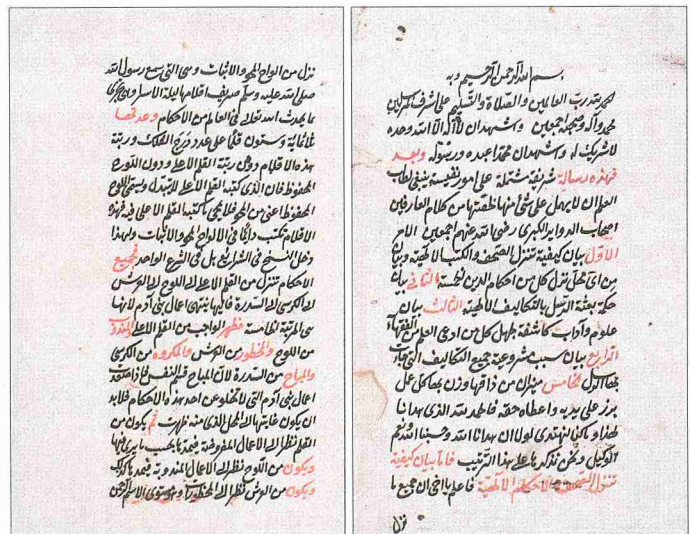 بسم الله الرحمن الرحيم وبه
الحمد لله رب العالمين والصلاة والتسليم على اشرف المرسلين
محمد وآله وصحبه اجمعين واشهد ان لا اله الا الله وحده
لا شريك له واشهد ان محمدا عبده ورسوله وبعد
فهذه رسالة شريفة مشتملة على امور نفيسة ينبغي لطالب
العلم ان لا يهمل على شئ منها لخصتها من كلام العارفين
اصحاب الدواير الكبرى رضي الله عنهم اجمعين الامر
الاول بيان كيفية تنزل الصحف والكتب الالهية وبيان
من اي محل نزل كل من احكام الدين الخمسة الثاني بيان
حكمة بعثة الرسل بالتكاليف الالهية الثالث بيان
علوم وآداب كاشفة لجهل كل من ادعى العلم من الفقهاء
الرابع بيان سبب مشروعية جميع التكاليف التي جاءت
بها الرسل الخامس ميزان من ذاقها وزن بها كل عمل
برز على يديه واعطاه حقه فالحمد لله الذي هدانا
لهذا وما كنا لنهتدي لولا ان هدانا الله وحسبنا الله ونعم
الوكيل ولنذكر ما على هذا الترتيب فاما بيان كيفية
تنزل الاحكام الالهية فاعلم يا اخي ان جميع ما
نزل
نزل من الواح المحو والاثبات وهي التي سمع رسول الله
صلى الله عليه وسلم صريف اقلامها ليلة الاسراء وهي تجري
بما يحدث الله تعالى في العالم من الاحكام وعدتها
ثلثمائة وستون قلما على عدد درج الفلك ورتبة
هذه الاقلام دون رتبة القلم الاعلى ودون اللوح
المحفوظ فان الذي كتبه القلم الاعلى لا يتبدل وسمي اللوح
المحفوظ اعني من المحو فلا يمحى ما كتبه القلم الاعلى فيه فهذه
الاقلام تكتب دائما في الالواح المحو والاثبات ولهذا
دخل النسخ في الشرائع بل في الشرع الواحد فجميع
الاحكام تنزل من القلم الاعلى الى اللوح الى العرش
الى الكرسي الى السدرة فاليها ينتهى اعمال بني آدم لانها
هي المرتبة الخامسة فظهر الواجب من القلم الاعلى والمندوب
من اللوح والمحظور من العرش والمكروه من الكرسي
والمباح من السدرة لان المباح قسم النفس فاذا صعدت
اعمال بني آدم التي لا تخلو عن احد هذه الاحكام فلا بد
ان يكون غايتها الى المحل الذي منه ظهرت ثم يكون من
القلم نظر الى الاعمال المفروضة فيمدها بحسب ما يرى فيها
ويكون من اللوح نظر الى الاعمال المندوبة فيمدها كذلك
ويكون من العرش نظر الى المحظورات وهو مستوى الاسم الرحمن